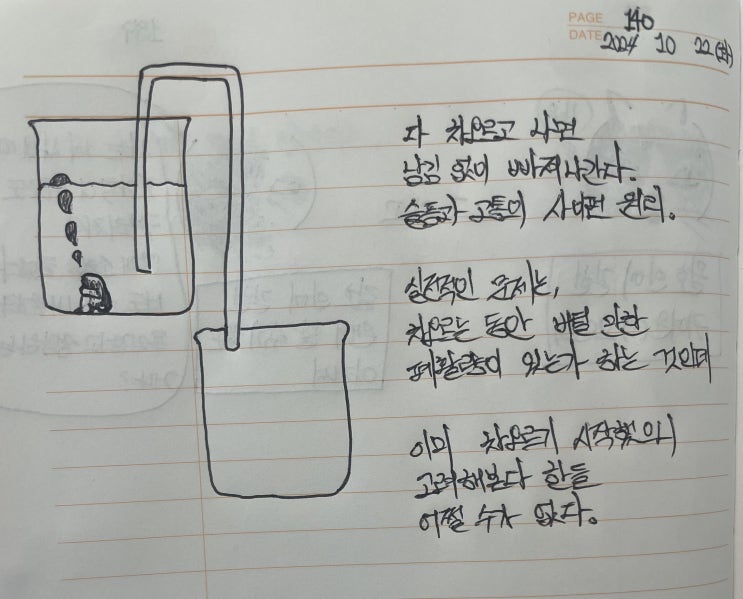 PAGE 140
DATE 2024 10 22(화)
다 차오르고 나면
남김 없이 빠져나간다.
슬픔과 고통의 사이펀 원리.
실전적인 문제는,
차오르는 동안 버틸 만한
폐활량이 있는가 하는 것인데
이미 차오르기 시작했으니
고려해본다 한들
어쩔 수가 없다.